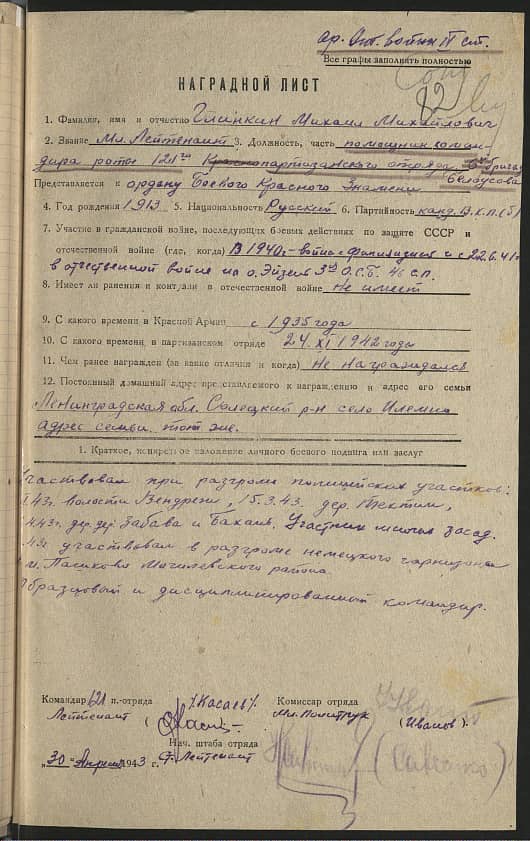 ор. От. войны II ст.
Все графы заполнять полностью
НАГРАДНОЙ ЛИСТ
1. Фамилия, имя и отчество Глинкин Михаил Михайлович
2. Звание Мл. Лейтенант 3. Должность, часть помощник коман-
дира роты 121го Краснопартизанского отряда
Белоусова
Представляется к ордену Боевого Красного Знамени
4. Год рождения 1913 5. Национальность Русский 6. Партийность канд. В.К.П.(б)
7. Участие в гражданской войне, последующих боевых действиях по защите СССР и
отечественной войне (где, когда) В 1940г-война с Финляндией и с 22.6.41г
в отечественной войне на о. Эйзель 3й О.С.Б. 46 с.п.
8. Имеет ли ранения и контузии в отечественной войне не имеет
9. С какого времени в Красной Армии с 1935 года
10. С какого времени в партизанском отряде 24. XI 1942 года
11. Чем ранее награжден (за какие отличия и когда) Не награждался
12. Постоянный домашний адрес представляемого к награждению и адрес его семьи
Ленинградская обл. Солецкий р-н село Илемно
адрес семьи тот же.
1. Краткое, конкретное изложение личного боевого подвига или заслуг
Участвовал при разгроме полицейских участков:
43г. волости Вендрежи, 15.3.43. дер.
43г. дер. дер. Забава и Участник многих засад.
43г. участвовал в разгроме немецкого гарнизона
м. Пашково Могилевского района.
Образцовый и дисциплинированный командир.
Командир 121 п.-отряда /Касаев/ Комиссар отряда
Лейтенант ( Мл. Политрук (Иванов)
Нач. штаба отряда
„30" Апреля 1943 г. Лейтенант